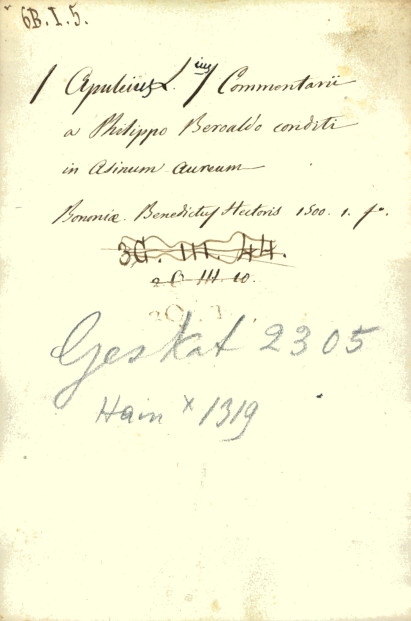 6B.I.5.
/ Apuleius L. ius / Commentarii
a Philippo Beroaldo conditi
in Asinum aureum
Bononiæ. Benedictus Hectoris 1500. 1. fo.
3G. III. 44.
2 C III. 10.
Ges Kat 2305
Hain x 1319